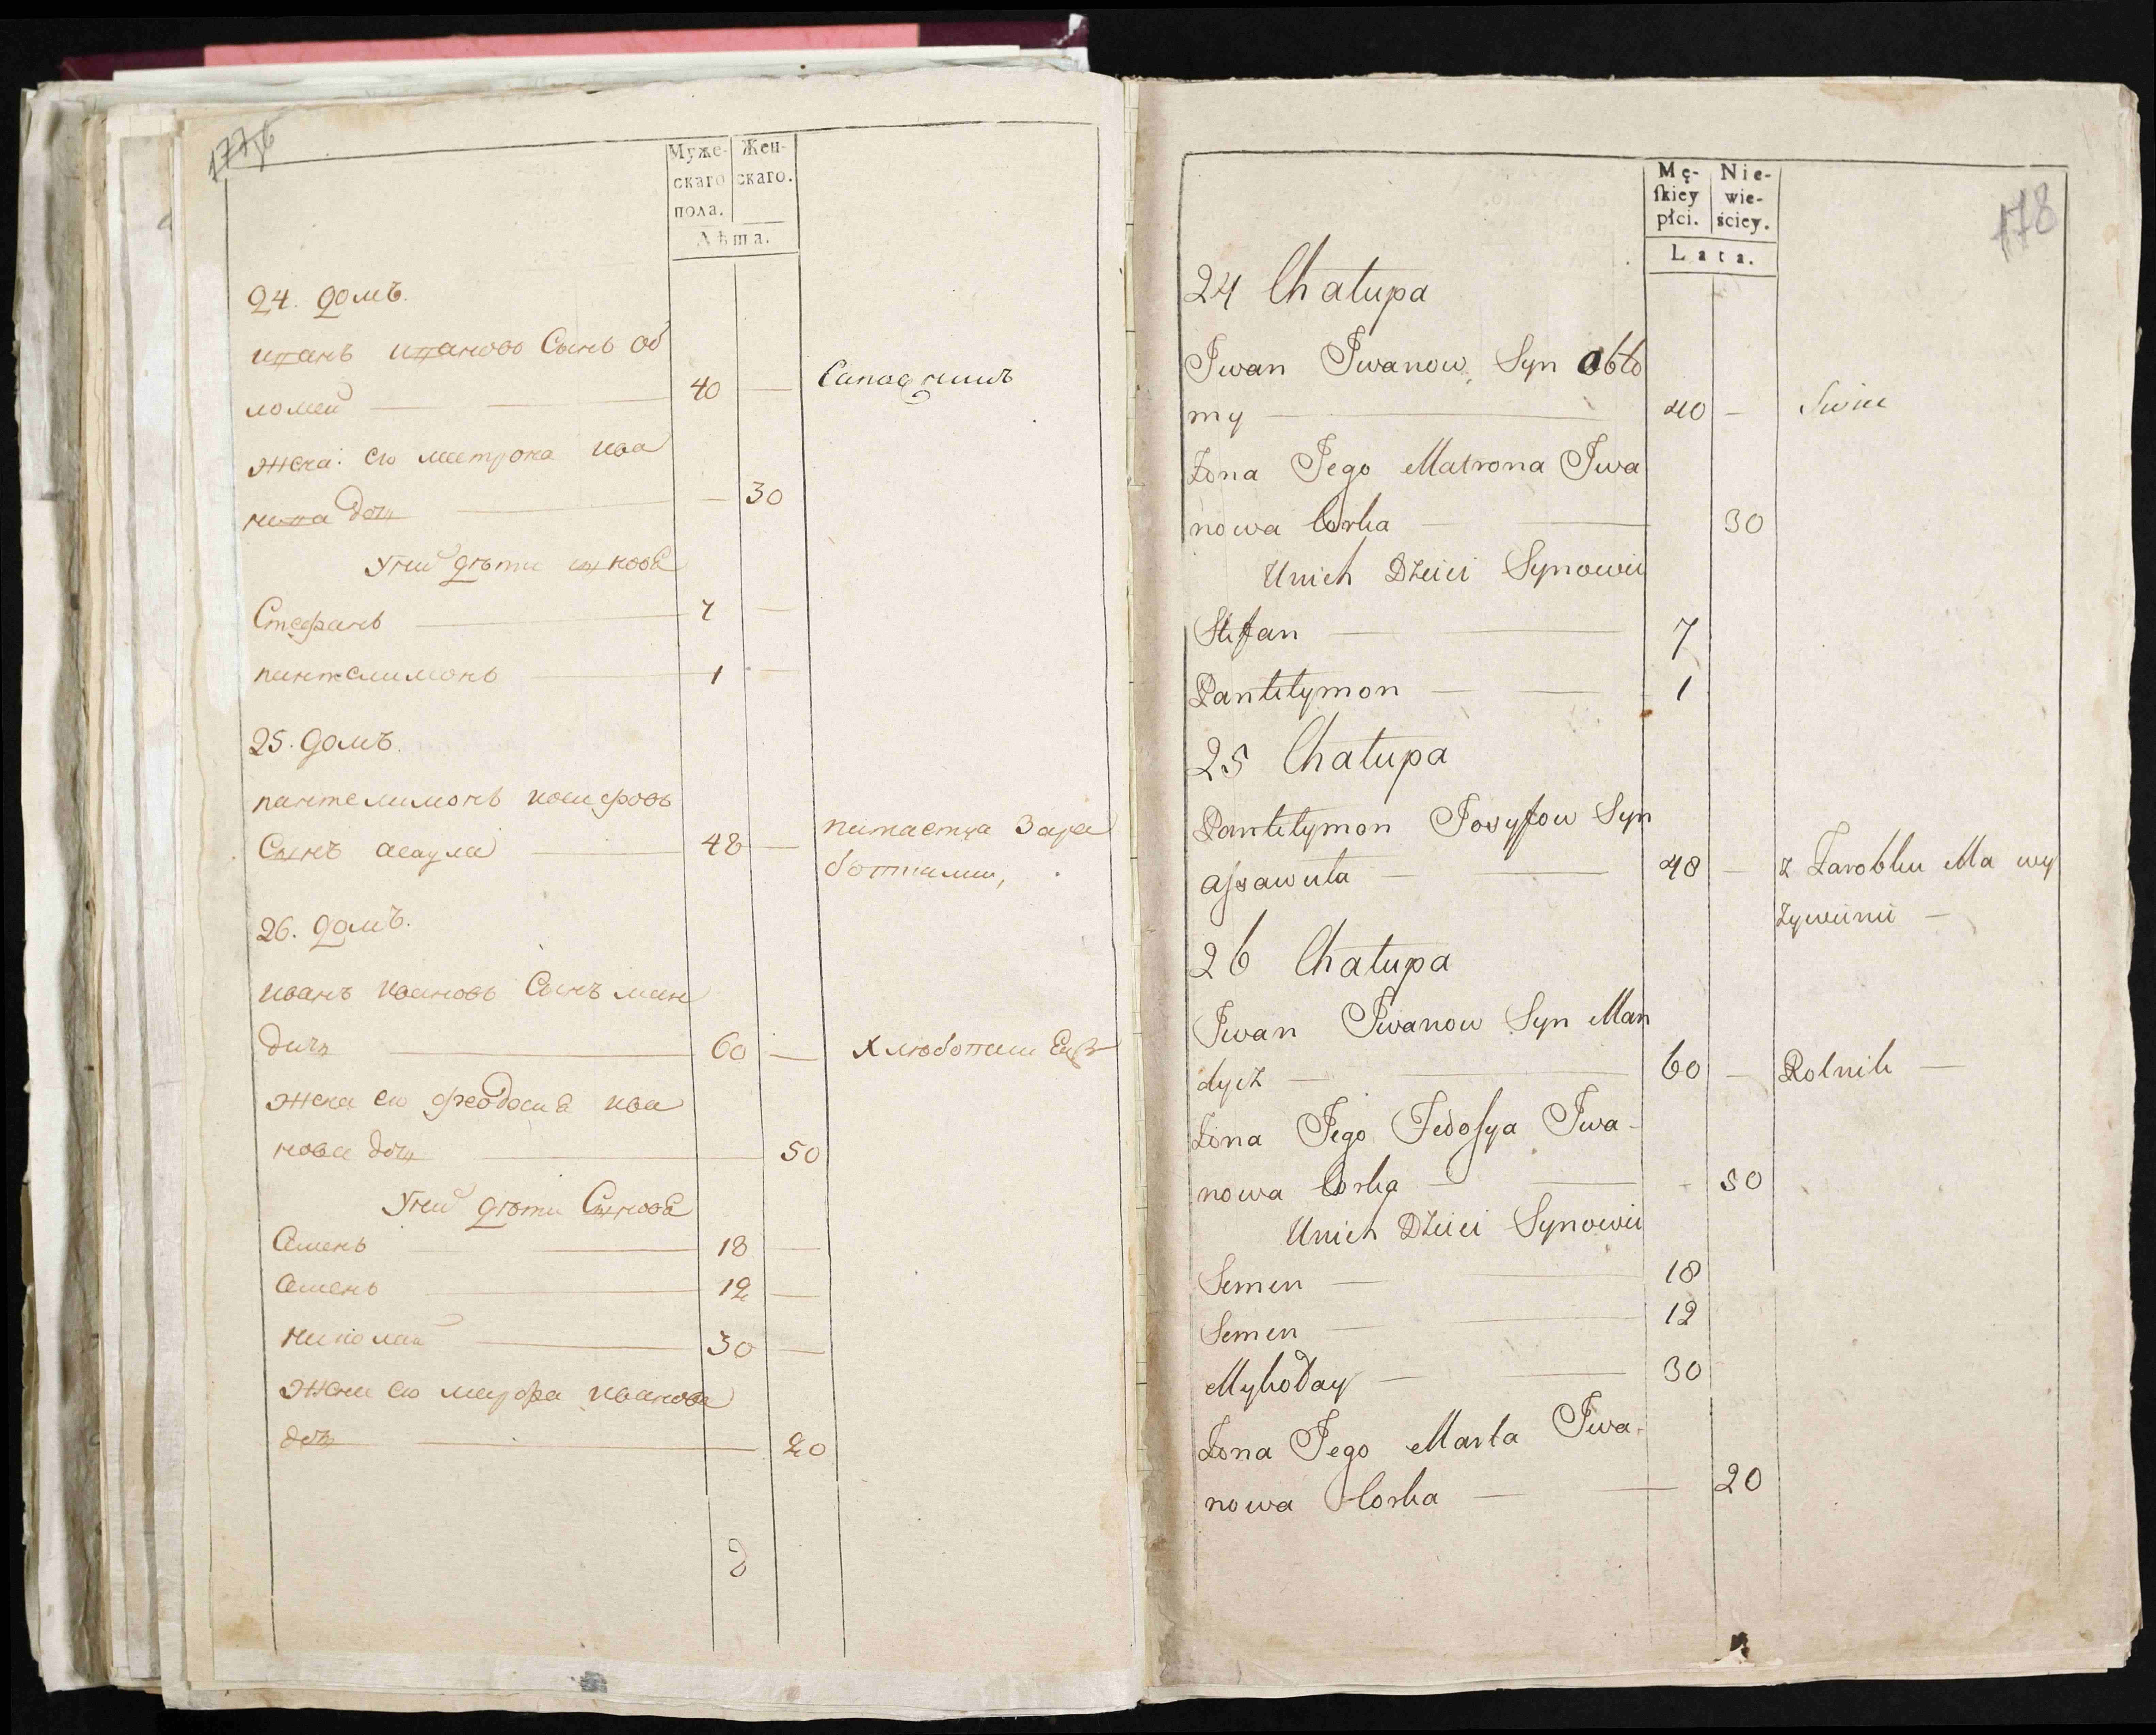 Муже-
скаго
пола.
Жен-
скаго.
Лѣта.
24. домъ.
иванъ ивановъ Сынъ об
ломей
40
жена: его матрона ива
нова дочь
30
У них дѣти сыновѣ
Стефанъ 7
пантелимонъ 1
25. домъ.
пантелимонъ иосифовъ
Сынъ асаула 48
питается Зара
ботками,
26. домъ.
иванъ ивановъ Сынъ ман
дичъ 60
жена его феодосиа ива
нова дочь 50
У них дѣти Сыновѣ
Семенъ 18
Семенъ 12
николай 30
жена его марфа иванова
дочь 20
178
Mę-
skiey
płci.
Nie-
wie-
ściey.
Lata.
24 Chałupa
Iwan Iwanow Syn Obło
my 40 —
Żona Jego Matrona Iwa
nowa Corka 30
Unich Dzieci Synowie
Stefan 7
Pantelymon 1
25 Chałupa
Pantelymon Josyfow Syn
assawuła 48 — z Zarobku Ma wy
żywienie —
26 Chałupa
Iwan Iwanow Syn Man
dycz 60 — Rolnik —
Żona Jego Fedosya Iwa-
nowa Corka 50
Unich Dzieci Synowie
Semen 18
Semen 12
Mykołay 30
Żona Jego Marta Iwa-
nowa Corka 20